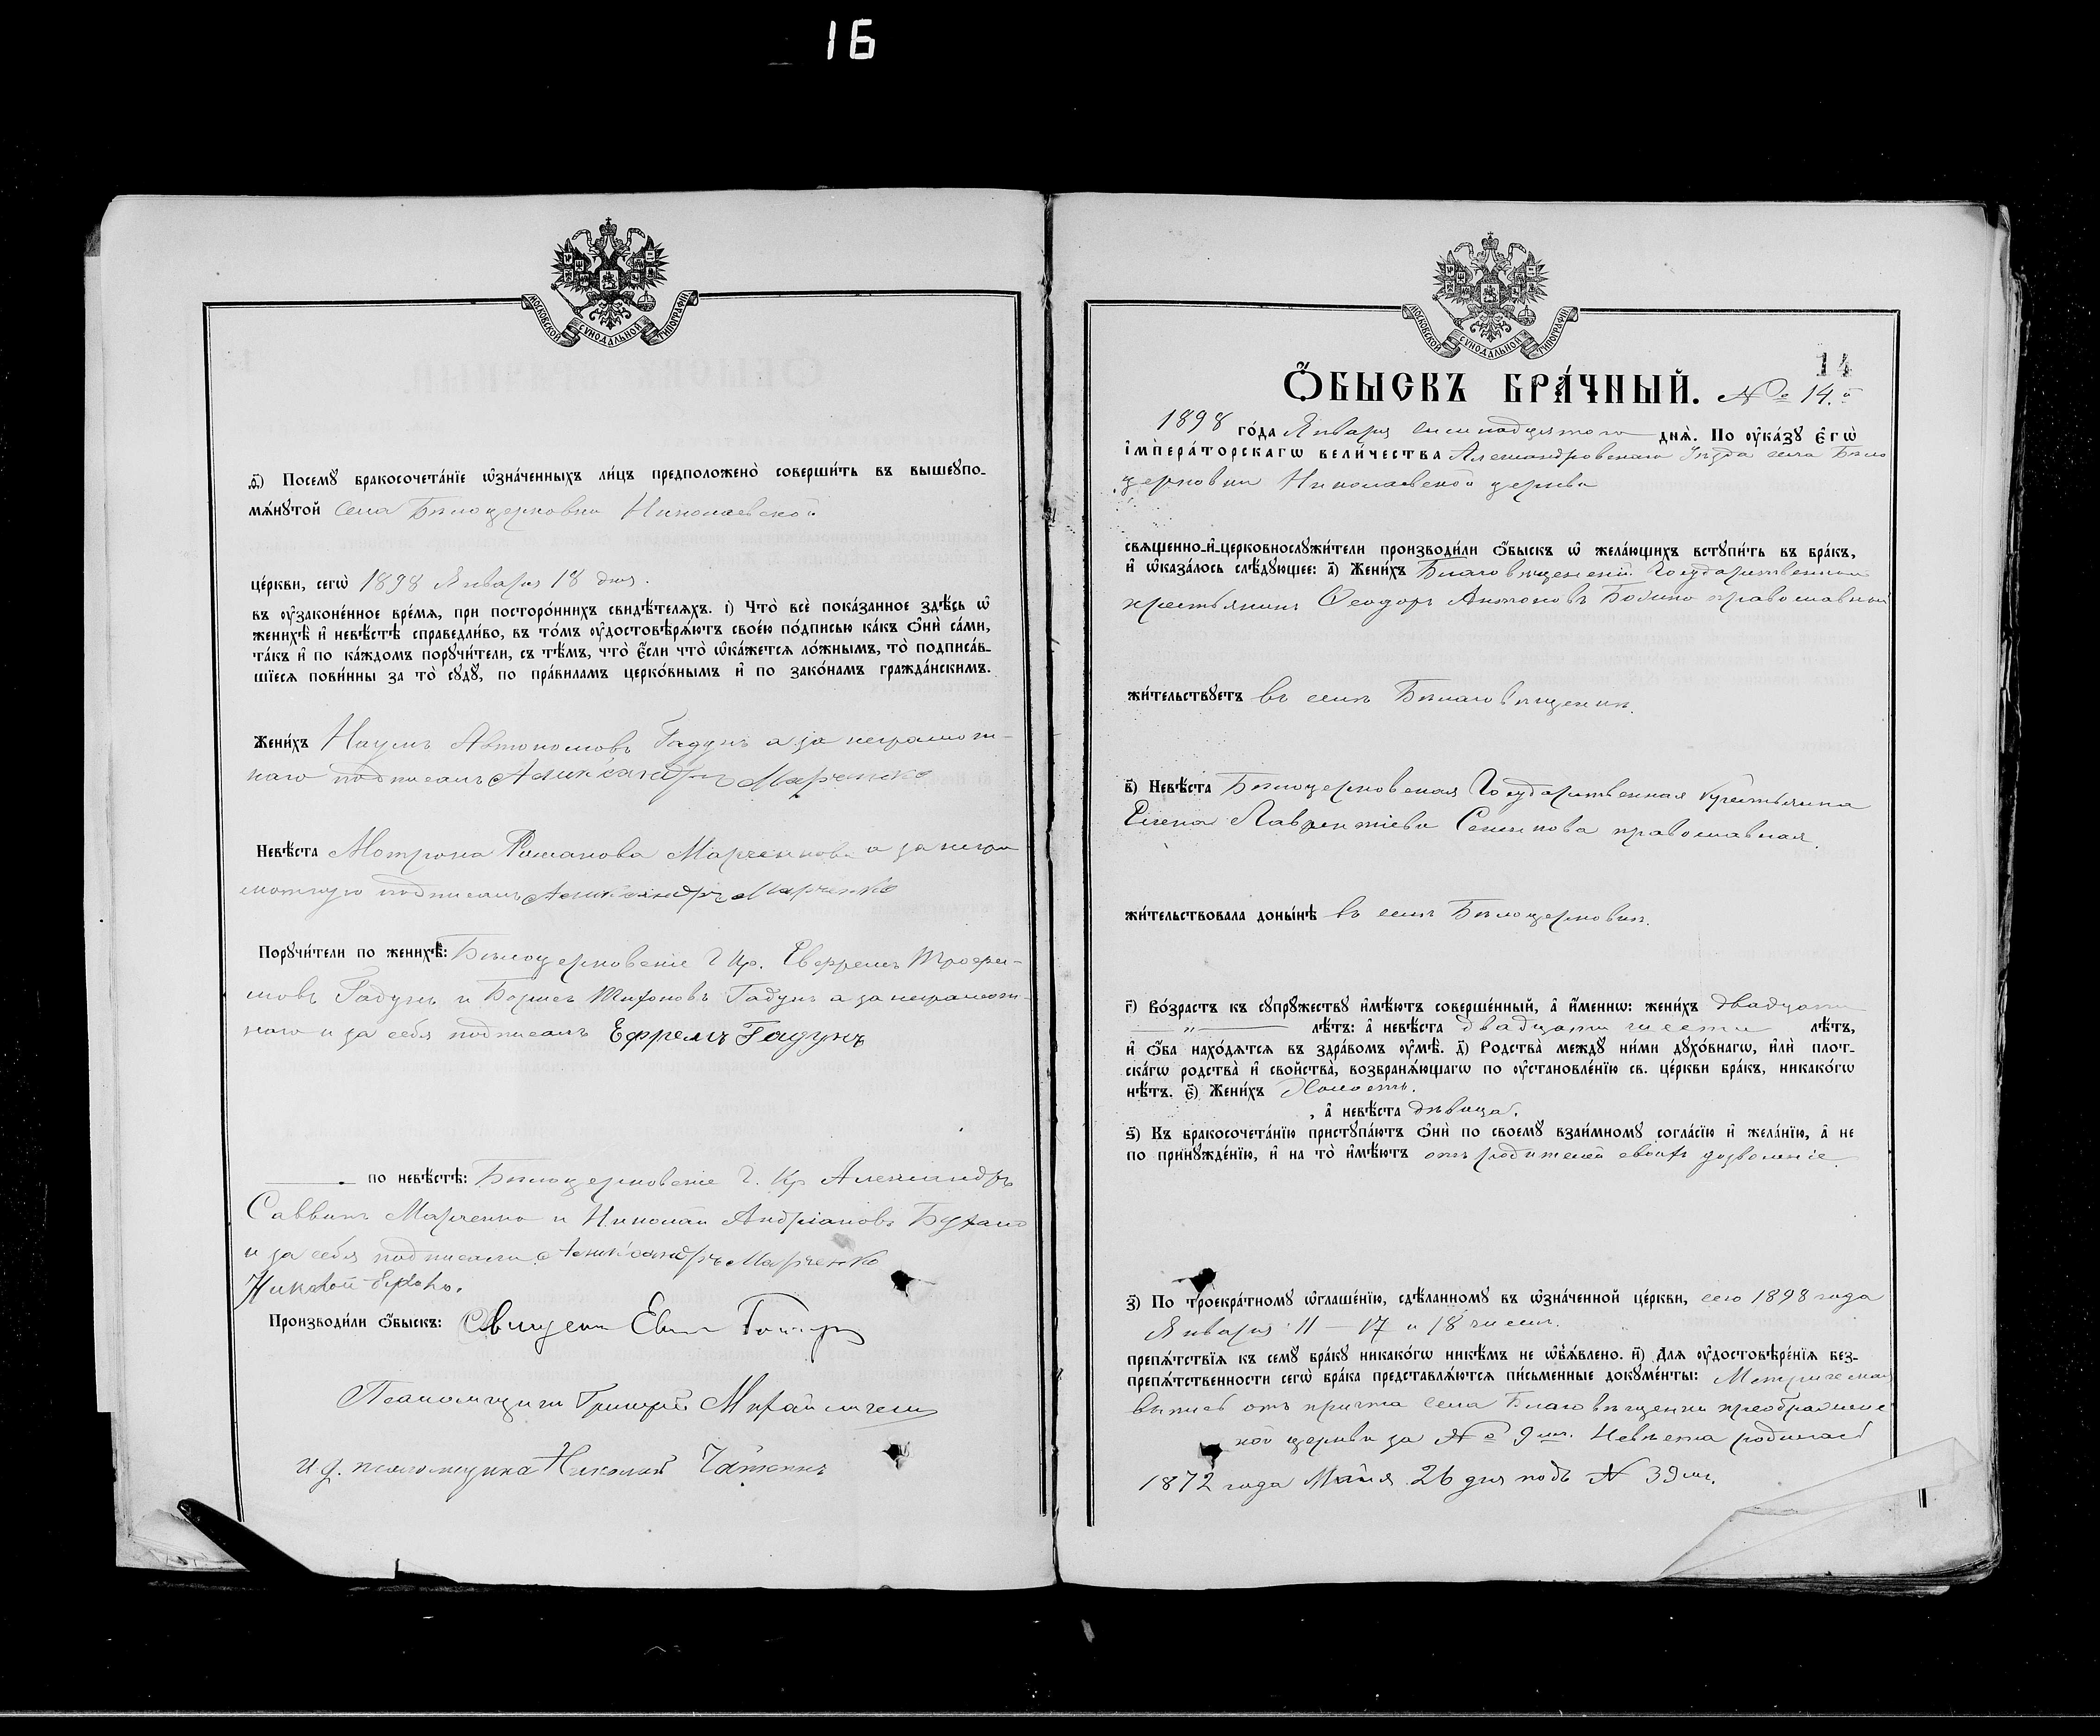 16
МОСКОВСКОЙ СУНОДАЛЬНОЙ ТИПОГРАФІИ
д҃) Посемꙋ бракосочета́нїе ѡ҆зна́ченныхъ ли́цъ предположено̀ соверши́ть въ вышеꙋпо-
мѧ́нꙋтой села Бѣлоцерковки Николаевской
це́ркви, сегѡ̀ 1898 Января 18 дня.
въ ᲂу҆зако́ненное вре́мѧ, при посторо́ннихъ свидѣ́телѧхъ. і҃) Что̀ всѐ пока́занное здѣ́сь ѡ҆
женихѣ̀ и҆ невѣ́стѣ справедли́во, въ то́мъ ᲂу҆достовѣрѧ́ютъ свое́ю по́дписью ка́къ ѻ҆нѝ са́ми,
та́къ и҆ по ка́ждомъ порꙋчи́тели, съ тѣ́мъ, что̀ є҆́сли что̀ ѡ҆ка́жетсѧ ло́жнымъ, то̀ подписа́в-
шїесѧ пови́нны за то̀ сꙋдꙋ̀, по пра́виламъ церко́внымъ и҆ по зако́намъ гражда́нскимъ.
Жени́хъ Наумъ Автономовъ Гадунъ а за неграмот-
наго подписалъ Александръ Марченко
Невѣ́ста Мотрона Романова Марченкова а за негра
мотную подписалъ Александръ Марченко
Порꙋчи́тели по женихѣ̀: Бѣлоцерковскіе Г Кр. Евфремъ Трофи-
мовъ Гадунъ и Борисъ Тихоновъ Гадунъ а за неграмот-
наго и за себя подписалъ Ефремъ Гадунъ
по невѣ́стѣ: Бѣлоцерковскіе Г. Кр Александръ
Саввинъ Марченко и Николай Андріановъ
и за себя подписали Александръ Марченко
Николай
Производи́ли ѻ҆́быскъ: Священ
Псаломщикъ Григорій
и. д. псаломщика Николай
МОСКОВСКОЙ СУНОДАЛЬНОЙ ТИПОГРАФІИ
14
Ѻ҆́БЫСКЪ БРА́ЧНЫЙ. № 14.й
1898 го́да Января восемнадцятого днѧ̀. По ᲂу҆ка́зꙋ є҆гѡ̀
і҆мпера́торскагѡ вели́чества Александровскаго Уѣзда села Бѣло
церковки Николаевской церкви
свѧщенно-и҆-церковнослꙋжи́тели производи́ли ѻ҆́быскъ ѡ҆ жела́ющихъ встꙋпи́ть въ бра́къ,
и҆ ѡ҆каза́лось слѣ́дꙋющее: а҃) Жени́хъ Благовѣщенскій Государственный
крестьянинъ Ѳеодоръ Антоновъ православный
жи́тельствꙋетъ въ селѣ Благовѣщенки.
в҃) Невѣ́ста Бѣлоцерковская Государственная крестьянка
Елена Лаврентіева Семенова православная.
жи́тельствовала доны́нѣ въ селѣ Бѣлоцерковки.
г҃) Во́зрастъ къ сꙋпрꙋ́жествꙋ и҆мѣ́ютъ соверше́нный, а҆ и҆́меннѡ: жени́хъ двадцати
„ лѣ́тъ: а҆ невѣ́ста двадцати шести лѣ́тъ,
и҆ ѻ҆́ба нахо́дѧтсѧ въ здра́вомъ ᲂу҆мѣ̀. д҃) Родства̀ междꙋ̀ ни́ми дꙋхо́внагѡ, и҆лѝ плот-
ска́гѡ родства̀ и҆ сво́йства, возбранѧ́ющагѡ по ᲂу҆становле́нїю св. це́ркви бра́къ, никако́гѡ
нѣ́тъ. є҃) Жени́хъ Холостъ.
, а҆ невѣ́ста дѣвица.
ѕ҃) Къ бракосочета́нїю пристꙋпа́ютъ ѻ҆нѝ по своемꙋ̀ взаи́мномꙋ согла́сїю и҆ жела́нїю, а҆ не
по принꙋжде́нїю, и҆ на то̀ и҆мѣ́ютъ отъ родителей своихъ дозволеніе.
з҃) По троекра́тномꙋ ѡ҆глаше́нїю, сдѣ́ланномꙋ въ ѡ҆зна́ченной це́ркви, сего 1898 года
Января 11 — 17 и 18 чиселъ.
препѧ́тствїѧ къ семꙋ̀ бра́кꙋ никако́гѡ никѣ́мъ не ѡ҆б̾ѧ́влено. и҃) Длѧ ᲂу҆достовѣре́нїѧ без-
препѧ́тственности сегѡ̀ бра́ка представлѧ́ютсѧ пи́сьменные докꙋме́нты: Метрическая
выпись отъ причта села Благовѣщенки преображенс
кой церкви за № 9мъ. Невѣста родилась
1872 года Мая 26 дня подъ № 39мъ.